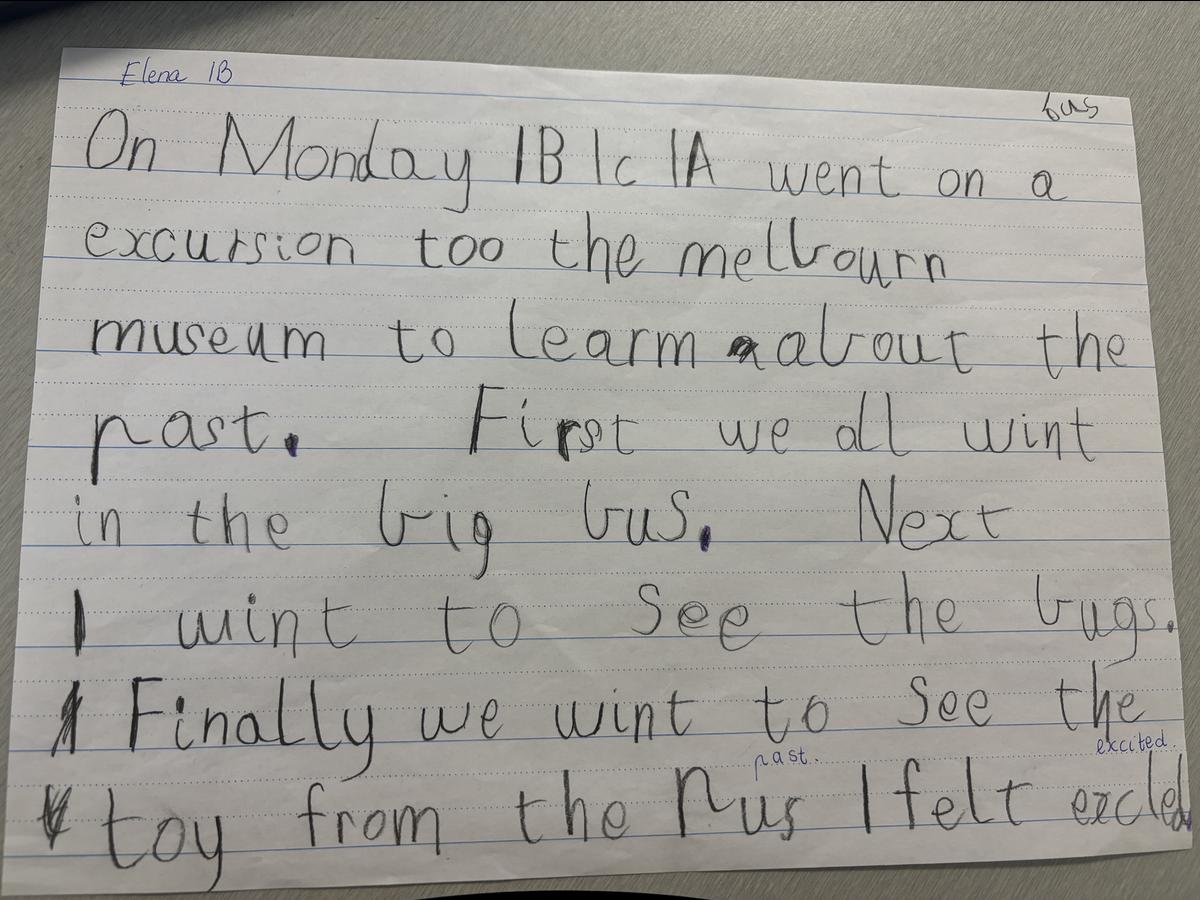 Elena 1B
bus
On Monday 1B 1c 1A went on a
excursion too the melbourn
museum to learm about the
past. First we all wint
in the big bus. Next
I wint to see the bugs.
Finally we wint to see the
past. excited.
toy from the Pus I felt excled